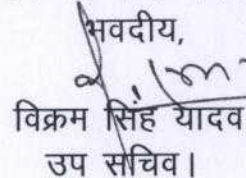 भवदीय,
विक्रम सिंह यादव
उप सचिव।